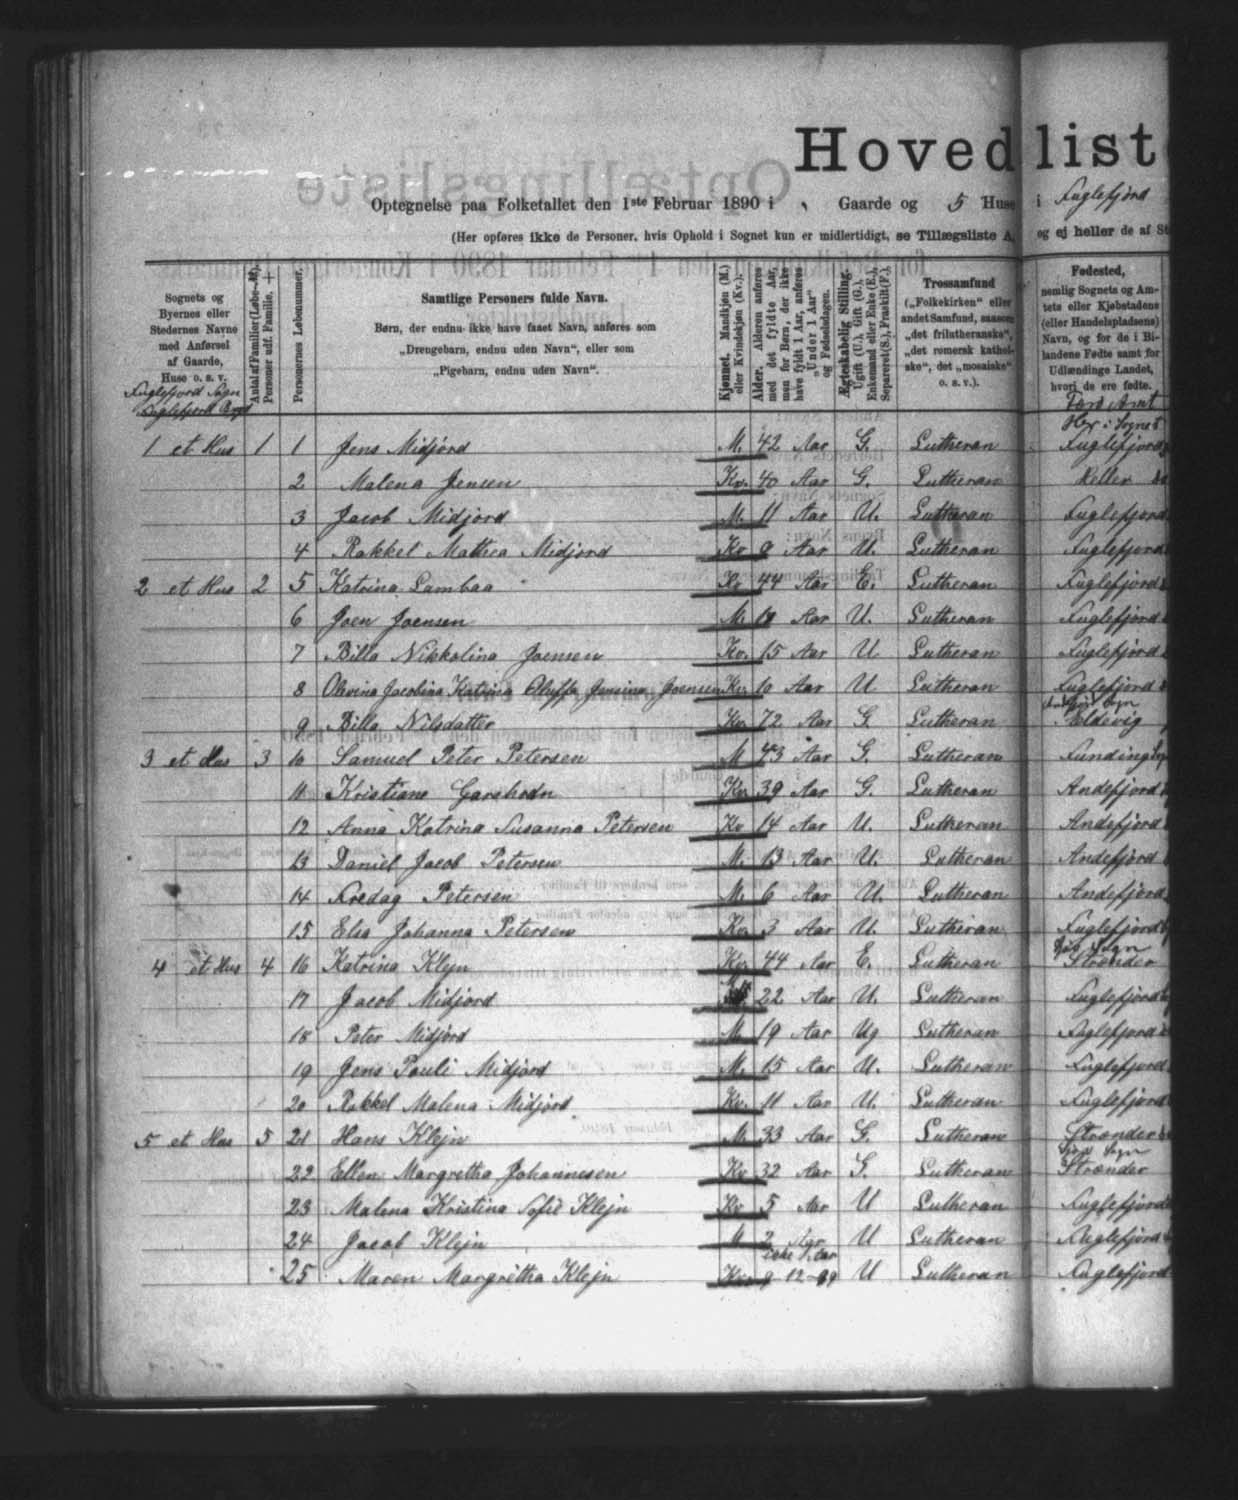 Hovedlist
Optegnelse paa Folketallet den 1ste Februar 1890 i Gaarde og 5 Huse i Fuglefjord
(Her opføres ikke de Personer, hvis Ophold i Sognet kun er midlertidigt, se Tillægsliste A, og ej heller de af
Sognets og Byernes eller Stedernes Navne med Anførsel af Gaarde, Huse o. s. v.
Antal af Familier (Løbe-№). Personer udf. Familie. +
Personernes Løbenummer.
Samtlige Personers fulde Navn.
Børn, der endnu ikke have faaet Navn, anføres som
„Drengebarn, endnu uden Navn", eller som
„Pigebarn, endnu uden Navn".
Kjønnet. Mandkjøn (M.) eller Kvindekjøn (Kv.).
Alder. Alderen anføres med det fyldte Aar, men for Børn, der ikke have fyldt Aar, anføres „Under 1 Aar" og Fødselsdagen.
Ægteskabelig Stilling. Ugift (U.), Gift (G.), Enkemand eller Enke (E.), Separeret (S.), Fraskilt (F.).
Trossamfund
(„Folkekirken" eller andet Samfund, saasom „det frilutheranske", „det romersk katholske", det „mosaiske" o. s. v.).
Fødested,
nemlig Sognets og Amtets eller Kjøbstadens (eller Handelspladsens) Navn, og for de i Bilandene Fødte samt for Udlændinge Landet, hvori de ere fødte.
Fuglefjord Sogn
Fuglefjord Bygd
Færø Amt
Her i Sognet
1 et Hus 1 1 Jens Midjord M. 42 Aar G. Lutheran Fuglefjord
2 Malena Jensen Kv. 40 Aar G. Lutheran Heller
3 Jacob Midjord M. 11 Aar U. Lutheran Fuglefjord
4 Rakkel Mathea Midjord Kv 9 Aar U. Lutheran Fuglefjord
2 et Hus 2 5 Katrina Lambaa Kv 44 Aar E. Lutheran Fuglefjord
6 Joen Joensen M. Aar U. Lutheran Fuglefjord
7 Billa Nikkolina Joensen Kv. 15 Aar U Lutheran Fuglefjord
8 Olevina Jacobina Katrina Oluffa Jensina Joensen Kv 10 Aar U Lutheran Fuglefjord
Sogn
9 Billa Nilsdatter Kv. 72 Aar G Lutheran Eldevig
3 et Hus 3 10 Samuel Peter Petersen M 43 Aar G. Lutheran Funding Sogn
11 Kristiane Garshodn Kv 39 Aar G. Lutheran Andefjord
12 Anna Katrina Susanna Petersen Kv 14 Aar U. Lutheran Andefjord
13 Daniel Jacob Petersen M. 13 Aar U. Lutheran Andefjord
14 Fredag Petersen M. 6 Aar U. Lutheran Andefjord
15 Elsa Johanna Petersen Kv 3 Aar U. Lutheran Fuglefjord
Sjov Sogn
4 et Hus 4 16 Katrina Klejn Kv. 44 Aar E. Lutheran Strænder
17 Jacob Midjord M 22 Aar U. Lutheran Fuglefjord
18 Peter Midjord M. 19 Aar Ug Lutheran Fuglefjord
19 Jens Pauli Midjord M. 15 Aar U. Lutheran Fuglefjord
20 Rakkel Malena Midjord Kv. 11 Aar U. Lutheran Fuglefjord
5 et Hus 5 21 Hans Klejn M 33 Aar G. Lutheran Strænder
Sjov Sogn
22 Ellen Margretha Johannesen Kv 32 Aar G. Lutheran Strænder
23 Malena Kristina Sofie Klejn Kv 5 Aar U Lutheran Fuglefjord
24 Jacob Klejn M 2 Aar U Lutheran Fuglefjord
ikke 1 Aar
25 Maren Margretha Klejn Kv 9 12-89 U Lutheran Fuglefjord